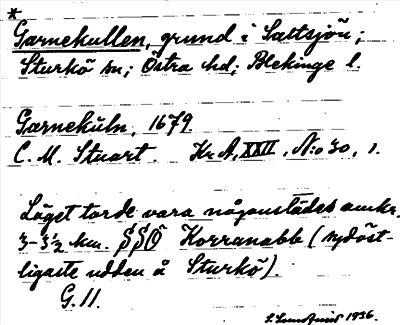 *
Garnekullen, grund i Saltsjön;
Sturkö sn; Östra hd; Blekinge l.
Garnekuln, 1679
C. M. Stuart. Kr. A, XXII, N:o 30, 1.
Läget torde vara någonstädes omkr.
3-3½ km. SSO Korranabb (sydöst-
ligaste udden å Sturkö).
G. 11.
1936.